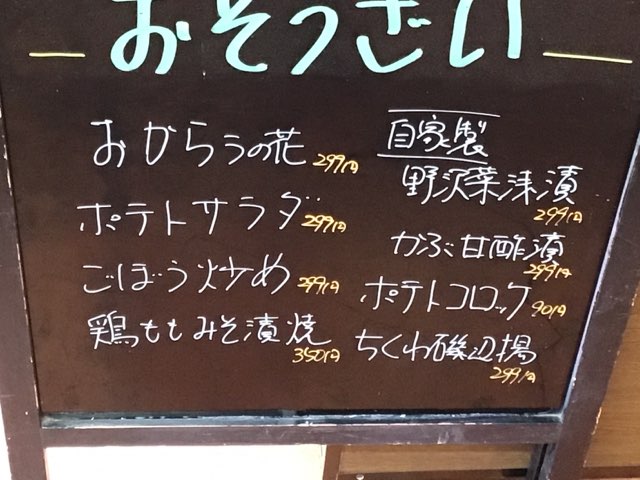 おそうざい
おからうの花 299円
ポテトサラダ 299円
ごぼう炒め 299円
鶏ももみそ漬焼 350円
自家製
野沢菜浅漬 299円
かぶ甘酢漬 299円
ポテトコロッケ 90円
ちくわ磯辺揚 299円